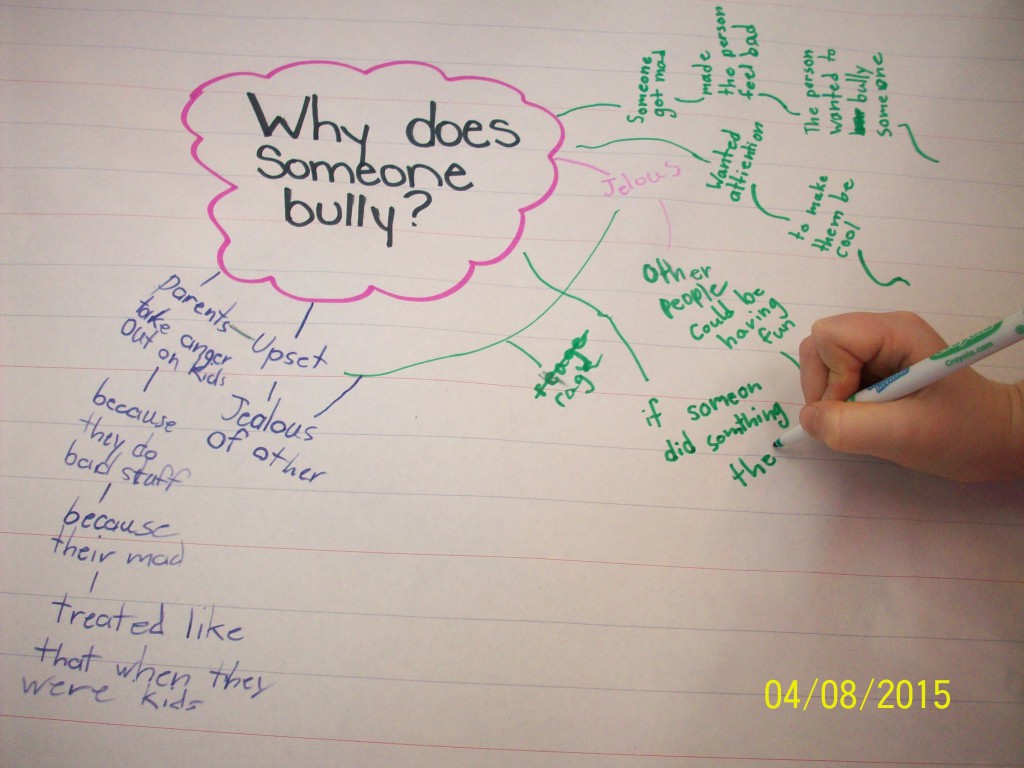 Why does
Someone
bully?
Someone
got mad
made
the person
feel bad
The person
wanted to
bully
someone
Wanted
attiention
to make
them be
cool
Jelous
Other
people
could be
having
fun
if someon
did somthing
the
rage
Parents
take anger
Out on kids
Upset
Jealous
of other
because
they do
bad stuff
because
their mad
treated like
that when they
were kids
Crayola.com
04/08/2015